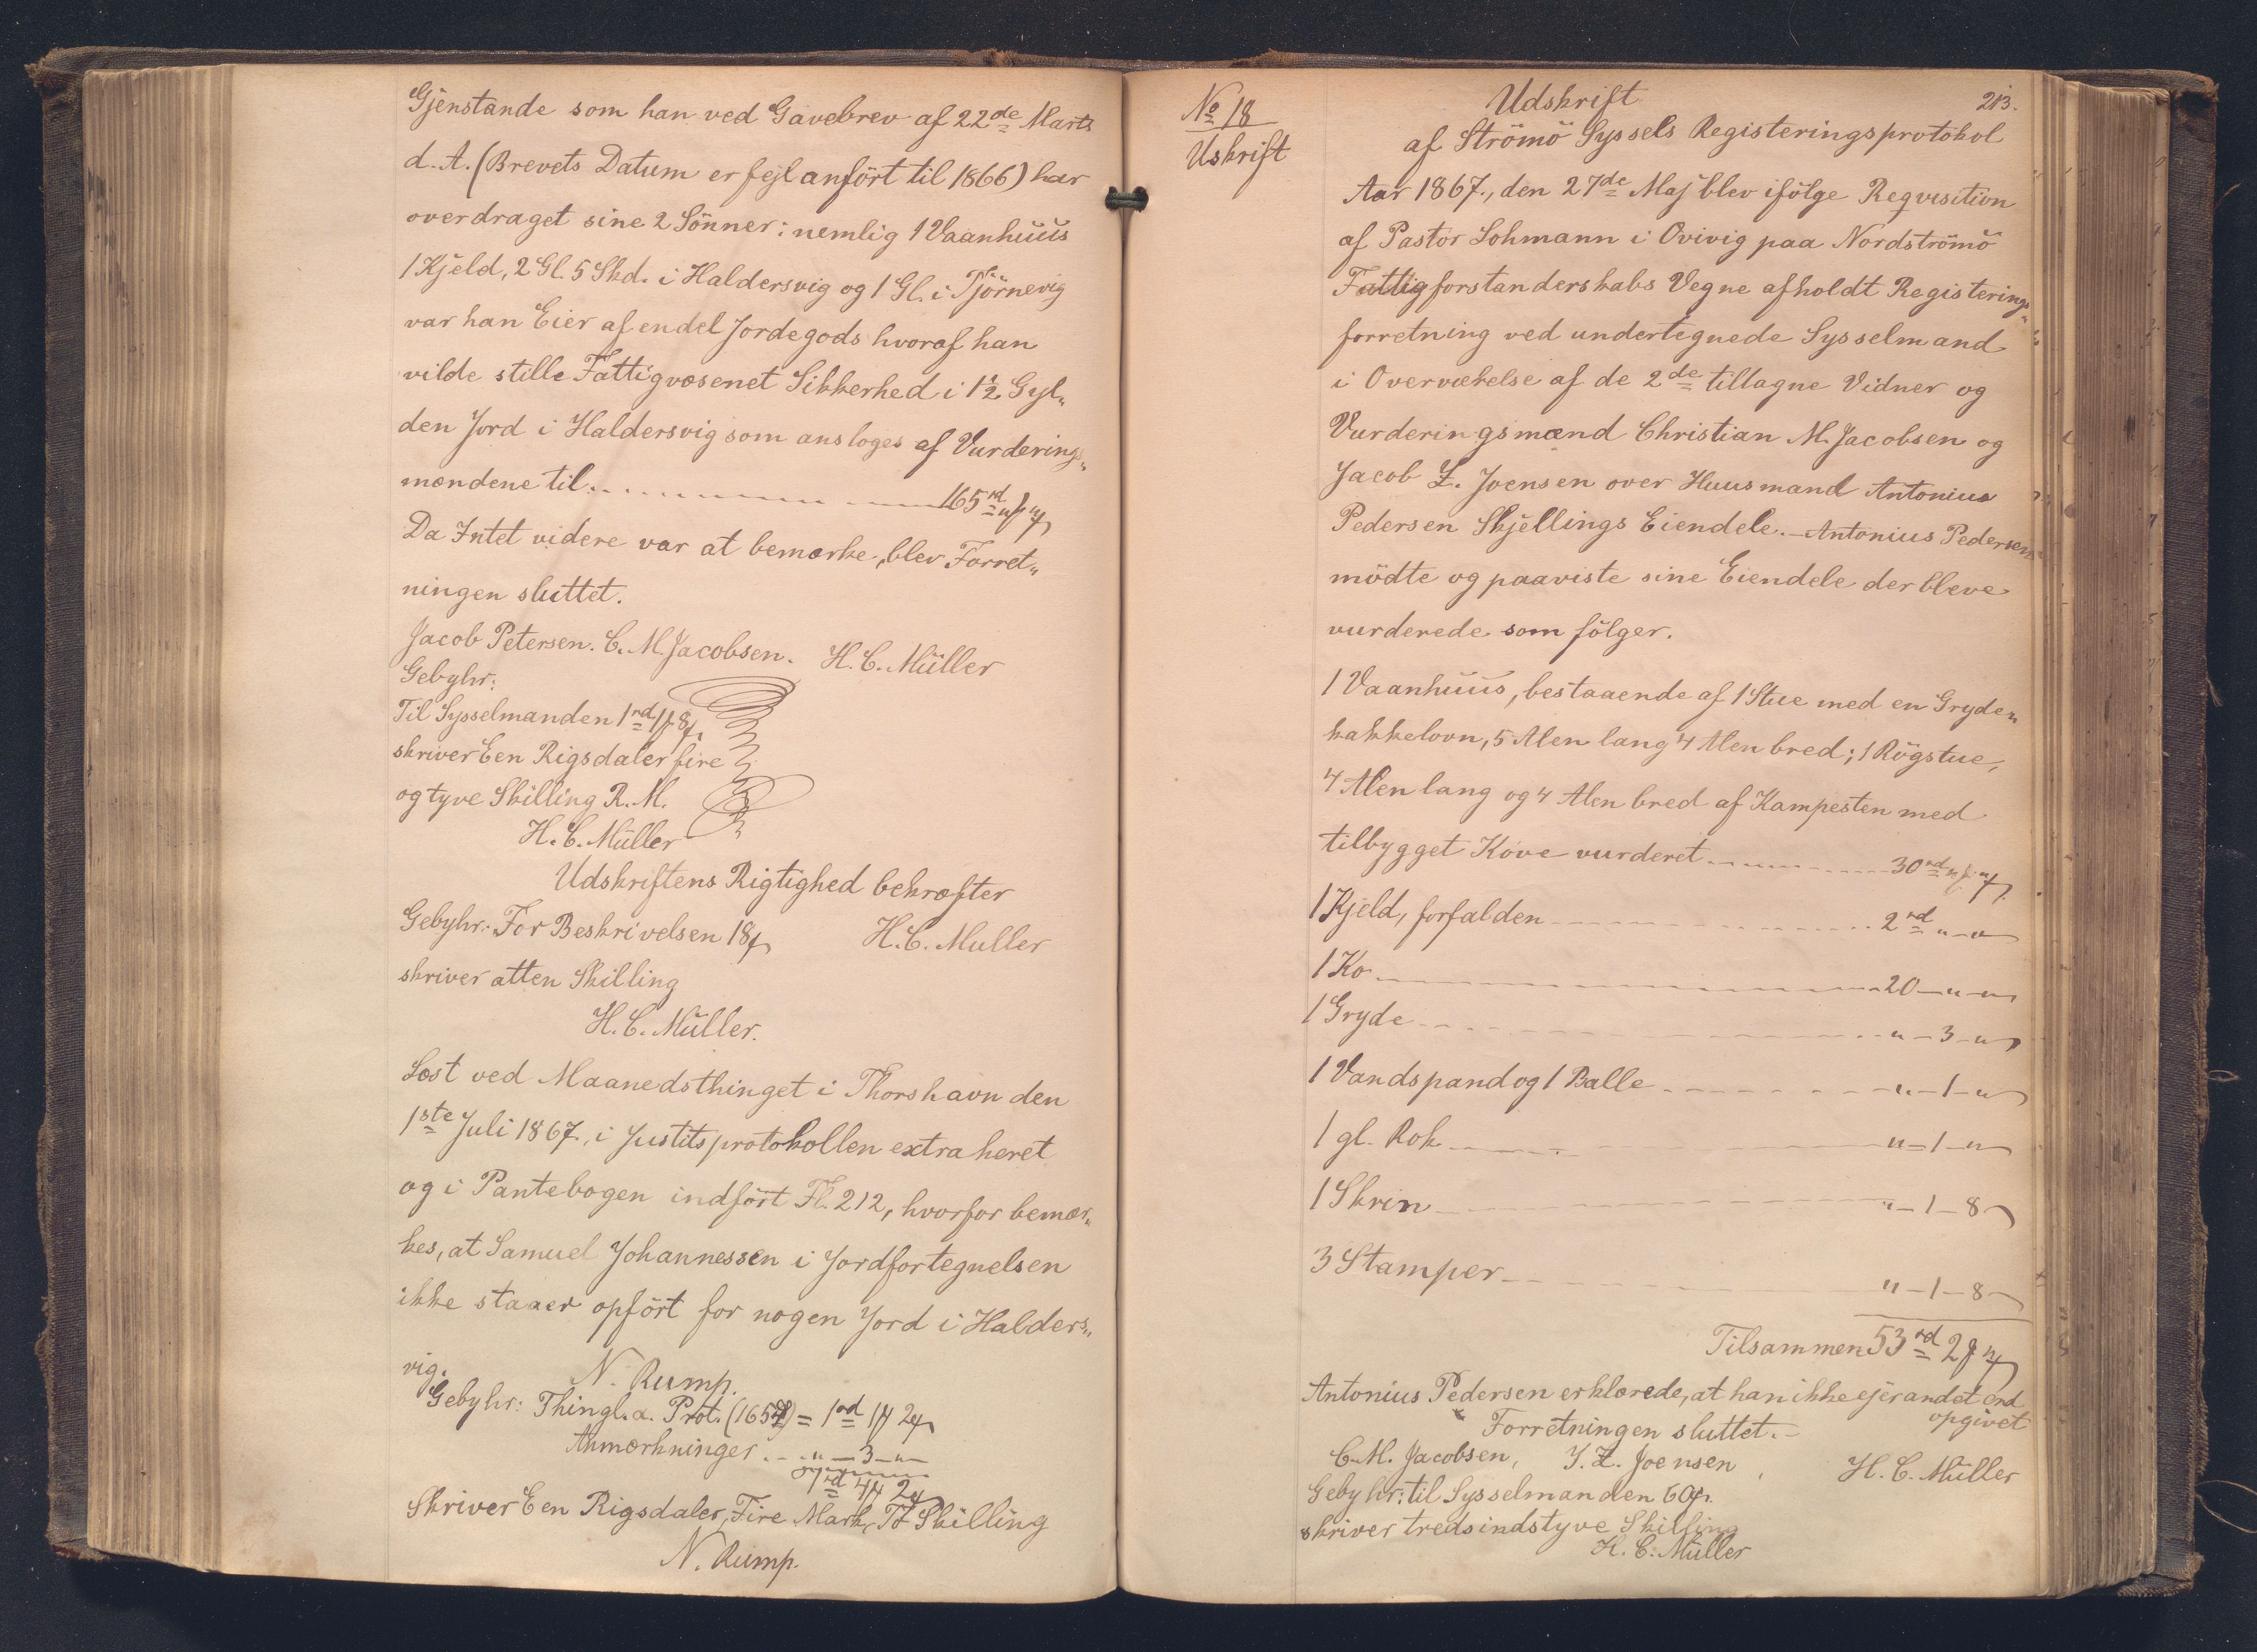 Gjenstande som han ved Gavebrev af 22de Marts
d. A. (Brevets Datum er fejl anfört til 1866) har
overdraget sine 2 Sönner: nemlig 1 Vaanhuus
1 Kjeld, 2 Gl. 5 Skd. i Haldersvig og 1 Gl. i Tjörnevig
var han Eier af endel Jordegods hvoraf han
vilde stille Fattigvæsenet Sikkerhed i 1½ Gyl„
den Jord i Haldersvig som ansloges af Vurderings„
mændene til 165 rd „ „
Da Intet videre var at bemærke, blev Forret„
ningen sluttet.
Jacob Petersen. C. M. Jacobsen. H. C. Müller
Gebyhr:
Til Sysselmanden 1 rd 1 8
skriver Een Rigsdaler fire
og tyve Skilling R. M.
H. C. Müller
Udskriftens Rigtighed bekræfter
Gebyhr: For Beskrivelsen 18 H. C. Muller
skriver atten Skilling
H. C. Müller.
Læst ved Maanedsthinget i Thorshavn den
1ste Juli 1867, i Justitsprotokollen extraheret
og i Pantebogen indfört Fl. 212, hvorfor bemær„
kes, at Samuel Johannessen i Jordfortegnelsen
ikke staaer opfört for nogen Jord i Halders„
vig. N. Rump.
Gebyhr: Thingl. a. Prot. (165) = 1 rd 1 2
Anmærkninger „ — 3 — „
1 rd 4 2
Skriver Een Rigsdaler, Fire Mark, To Skilling
N. Rump.
No 18
Uskrift
213.
Udskrift
af Strömö Syssels Registeringsprotokol
Aar 1867, den 27de Maj blev ifölge Reqvisition
af Pastor Lohmann i Ovivig paa Nordströmö
Fattigforstanderskabs Vegne afholdt Registerings„
forretning ved undertegnede Sysselmand
i Overværelse af de 2de tiltagne Vidner og
Vurderingsmænd Christian M. Jacobsen og
Jacob Z. Joensen over Huusmand Antonius
Pedersen Skjellings Eiendele. — Antonius Pedersen
mödte og paaviste sine Eiendele der bleve
vurderede som fölger.
1 Vaanhuus, bestaaende af 1 Stue med en Gryde„
kakkelovn, 5 Alen lang 4 Alen bred; 1 Rögstue,
4 Alen lang og 4 Alen bred af Kampesten med
tilbygget Kove vurderet 30 rd „ „
1 Kjeld, forfalden 2 rd „ — „
1 Ko 20 — „ — „
1 Gryde „ — 3 — „
1 Vandspand og 1 Balle „ — 1 — „
1 gl. Rok „ — 1 — „
1 Skrin „ — 1 — 8
3 Stamper „ — 1 — 8
Tilsammen 53 rd 2 „
Antonius Pedersen erklærede, at han ikke ejer andet end
opgivet
Forretningen sluttet. —
C. M. Jacobsen, J. Z. Joensen, H. C. Müller
Gebyhr: til Sysselmanden 60
skriver tredsindstyve Skilling
H. C. Müller